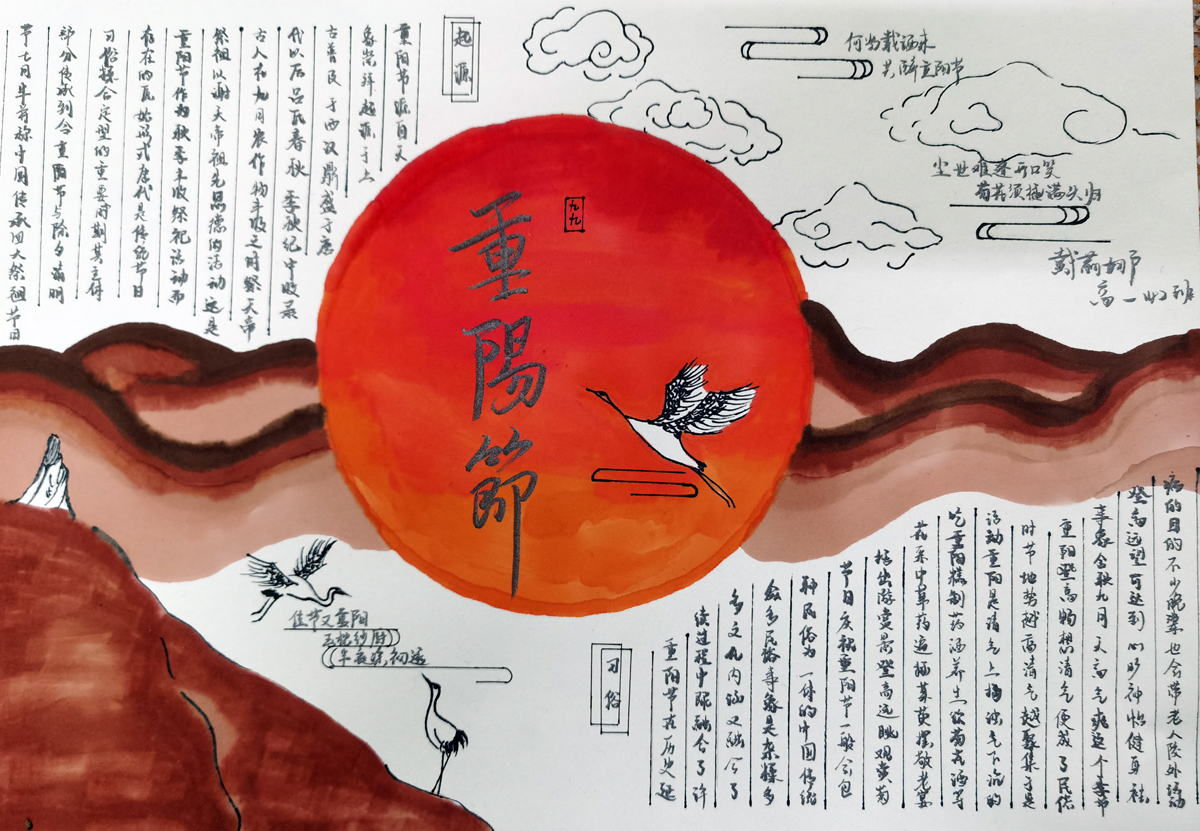 何当载酒来
共醉重阳节
尘世难逢开口笑
菊花须插满头归
高一 班
起源
重阳节源自天
象崇拜起源于上
古普及于西汉鼎盛于唐
代以后吕氏春秋 季秋纪中收录
古人在九月农作物丰收之时祭天帝
祭祖以谢天帝祖先恩德的活动这是
重阳节作为秋季丰收祭祀活动而
存在的原始形式唐代是传统节日
习俗揉合定型的重要时期其主体
部分传承到今重阳节与除夕清明
节七月半并称中国传承四大祭祖节日
九九
重陽節
佳节又重阳
玉枕纱厨
半夜凉初透
习俗
重阳节在历史延
续过程中融合了许
多文化内涵又融合了
众多民俗事象是杂糅多
种民俗为一体的中国传统
节日庆祝重阳节一般会包
括出游赏景登高远眺观赏菊
花采中草药遍插茱萸摆敬老宴
吃重阳糕制药酒养生饮菊花酒等
活动重阳是清气上扬浊气下沉的
时节地势越高清气越聚集于是
重阳登高畅想清气便成了民俗
事象金秋九月天高气爽这个季节
登高远望可达到心旷神怡健身祛
病的目的不少晚辈也会带老人院外活动